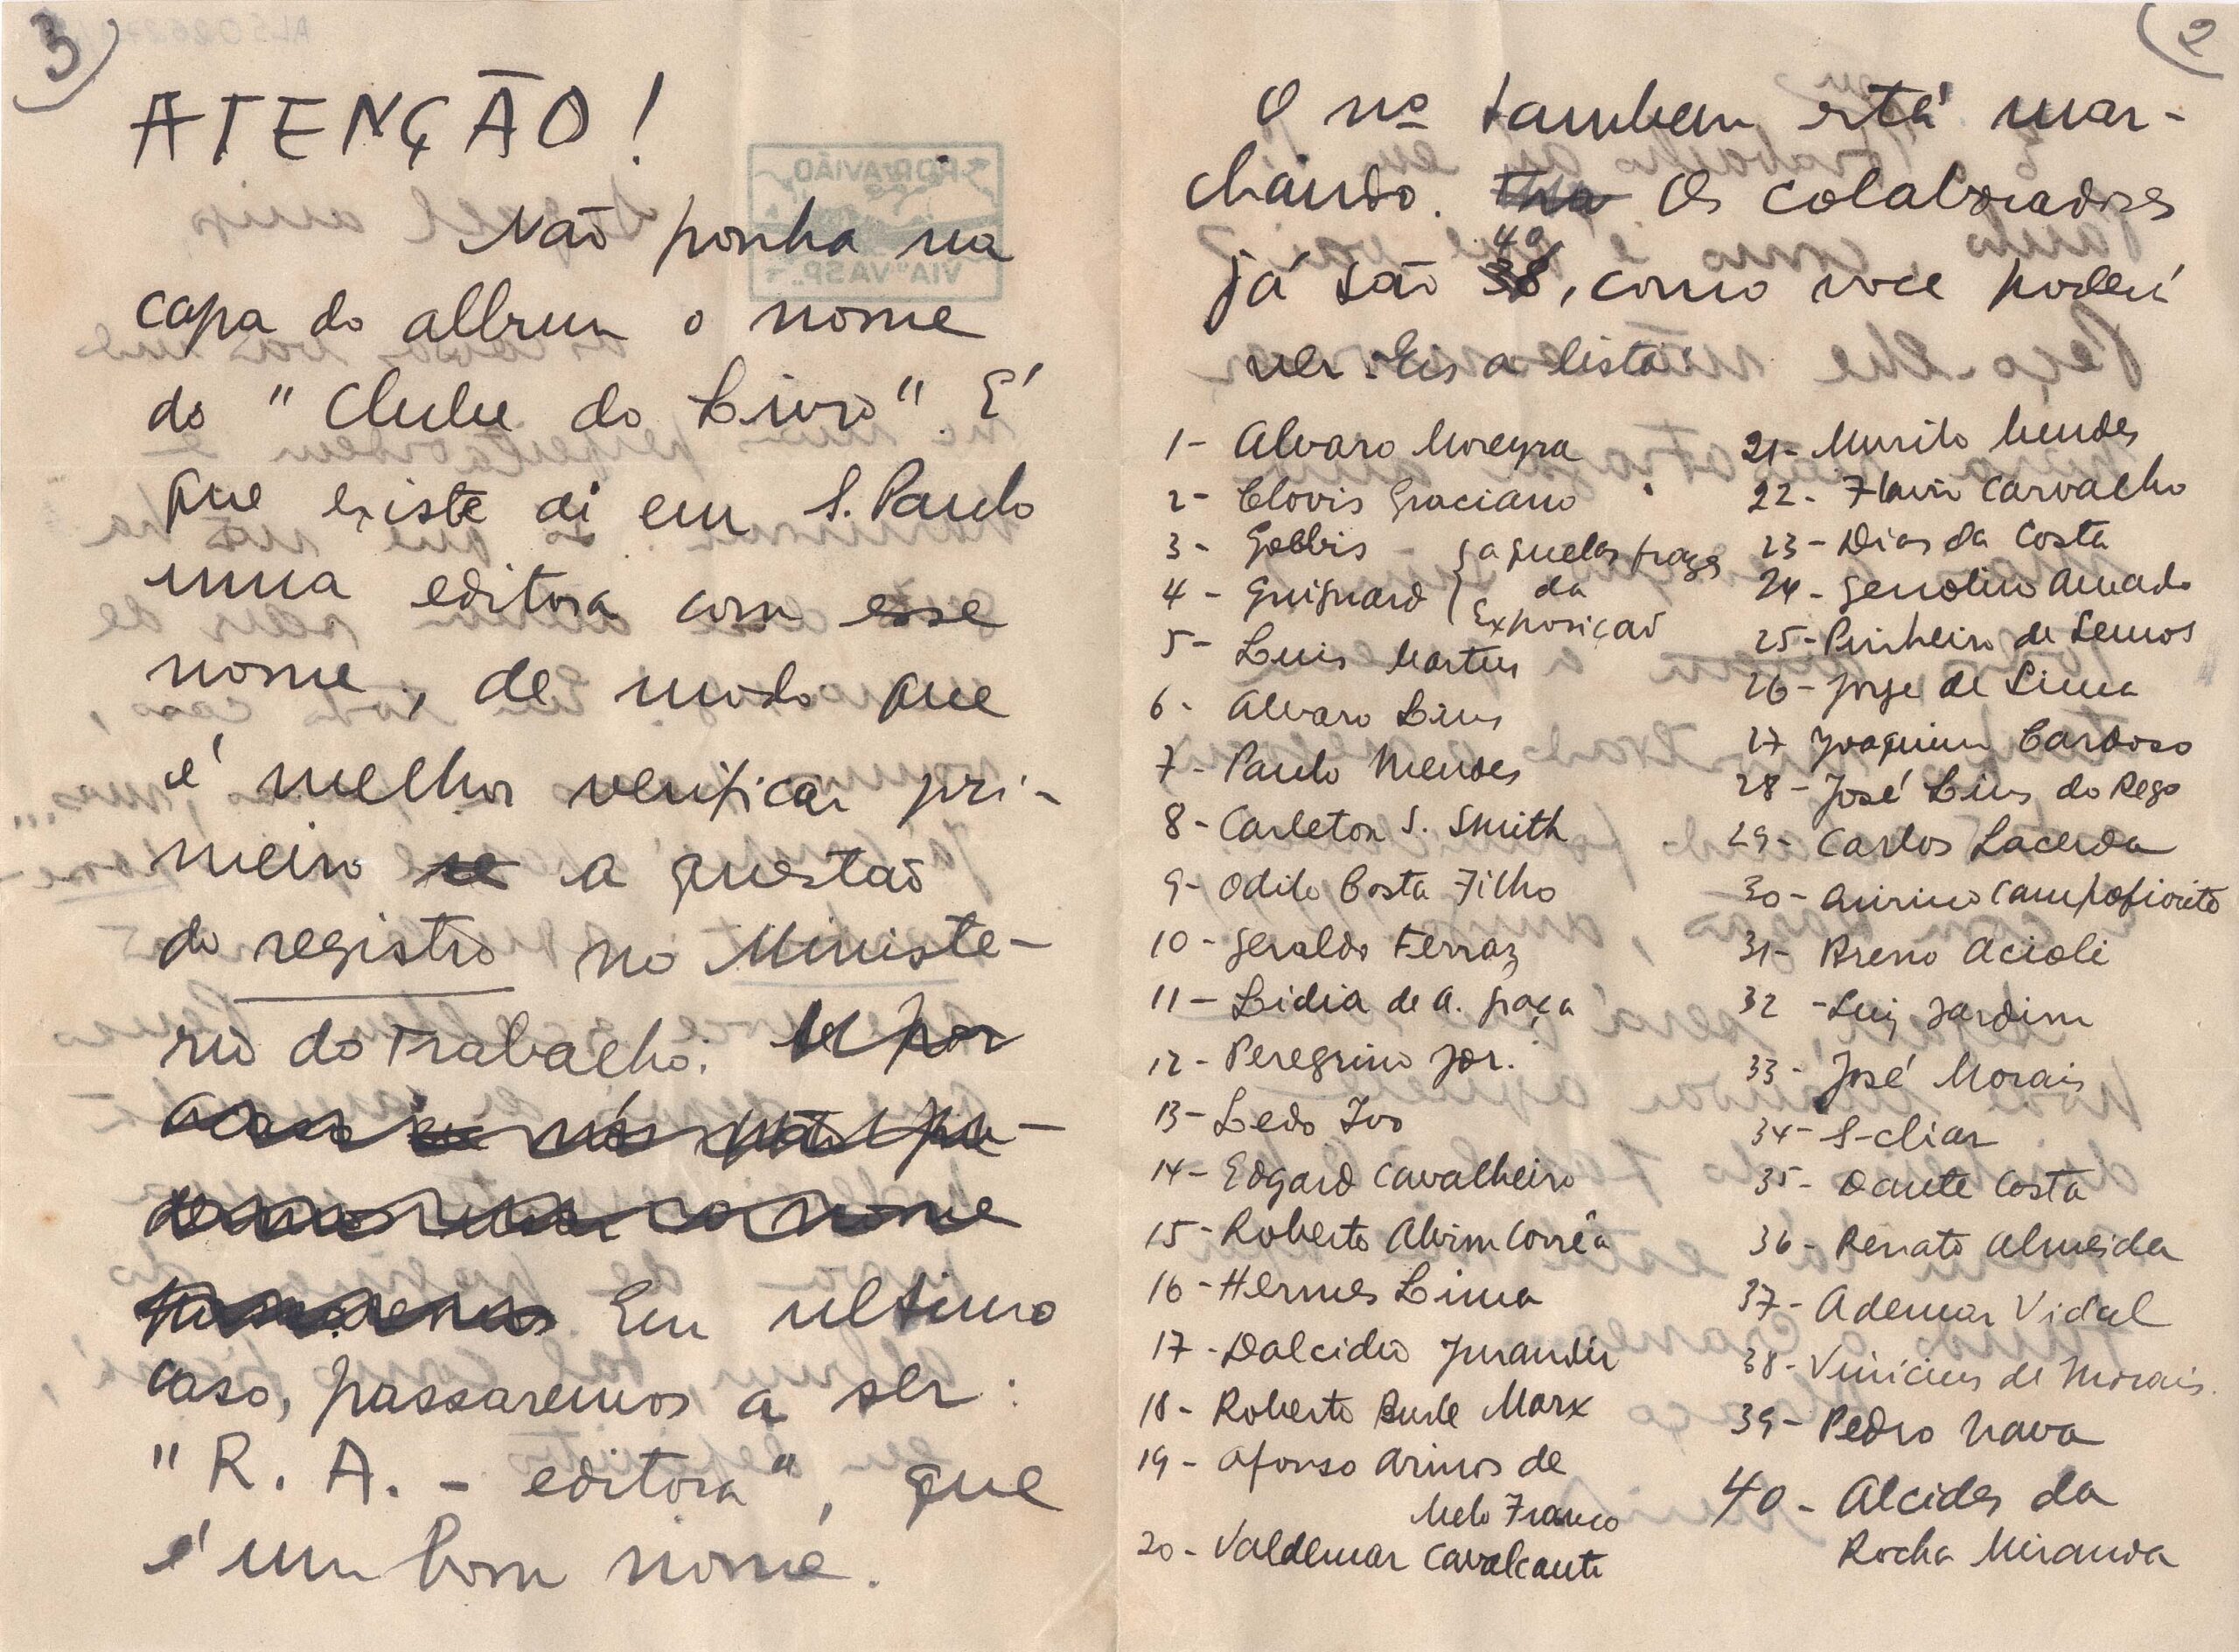 3)
ATENÇÃO!
Não ponha na
capa do album o nome
do "Clube do Livro". É
que existe aí em S. Paulo
uma editora com esse
nome, de modo que
é melhor verificar pri-
meiro se a questão
do registro no Ministe-
rio do Trabalho. Se por
acaso nós não po-
demos usar o nome
passaremos Em ultimo
caso, passaremos a ser:
"R. A. - editora", que
é um bom nome.
(2
O nº tambem está mar-
chando. Os colaboradores
40
já são 38, como voce poderá
ver. Eis a lista:
1- Alvaro Moreyra
2- Clovis Graciano
3- Gobbis - } aquelas frases
4- Guignard } da
Exposição
5- Luis Martins
6- Alvaro Lins
7- Paulo Mendes
8- Carleton S. Smith
9- Odilo Costa Filho
10- Geraldo Ferraz
11- Lidia de A. Graça
12- Peregrino Jor.
13- Ledo Ivo
14- Edgard Cavalheiro
15- Roberto Alvim Corrêa
16- Hermes Lima
17- Dalcidio Jurandir
18- Roberto Burle Marx
19- Afonso Arinos de
Melo Franco
20- Valdemar Cavalcanti
21- Murilo Mendes
22- Flavio Carvalho
23- Dias da Costa
24- Genolino Amado
25- Pinheiro de Lemos
26- Jorge de Lima
27 Joaquim Cardoso
28- José Lins do Rego
29- Carlos Lacerda
30- Quirino Campofiorito
31- Breno Acioli
32- Luiz Jardim
33- José Morais
34- S-cliar
35- Dante Costa
36- Renato Almeida
37- Ademar Vidal
38- Vinicius de Morais.
39- Pedro Nava
40- Alcides da
Rocha Miranda